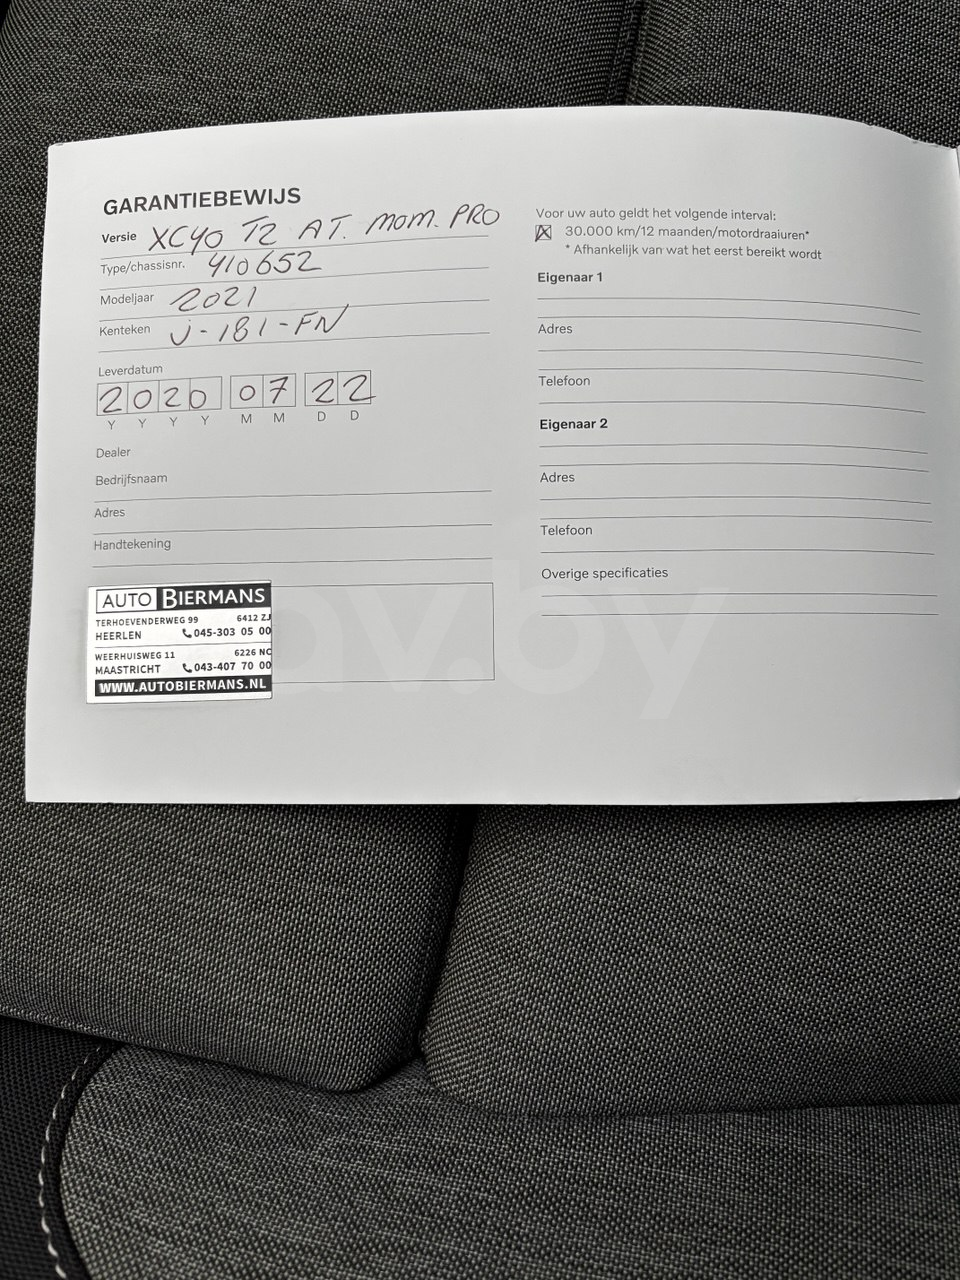 GARANTIEBEWIJS
Versie XC40 T2 AT. MOM. PRO
Type/chassisnr. 410652
Modeljaar 2021
Kenteken J-181-FN
Leverdatum
2020 07 22
Y Y Y Y M M D D
Dealer
Bedrijfsnaam
Adres
Handtekening
AUTO BIERMANS
TERHOEVENDERWEG 99 6412 ZJ
HEERLEN 045-303 05 00
WEERHUISWEG 11 6226 NC
MAASTRICHT 043-407 70 00
WWW.AUTOBIERMANS.NL
Voor uw auto geldt het volgende interval:
30.000 km/12 maanden/motordraaiuren*
* Afhankelijk van wat het eerst bereikt wordt
Eigenaar 1
Adres
Telefoon
Eigenaar 2
Adres
Telefoon
Overige specificaties
av.by